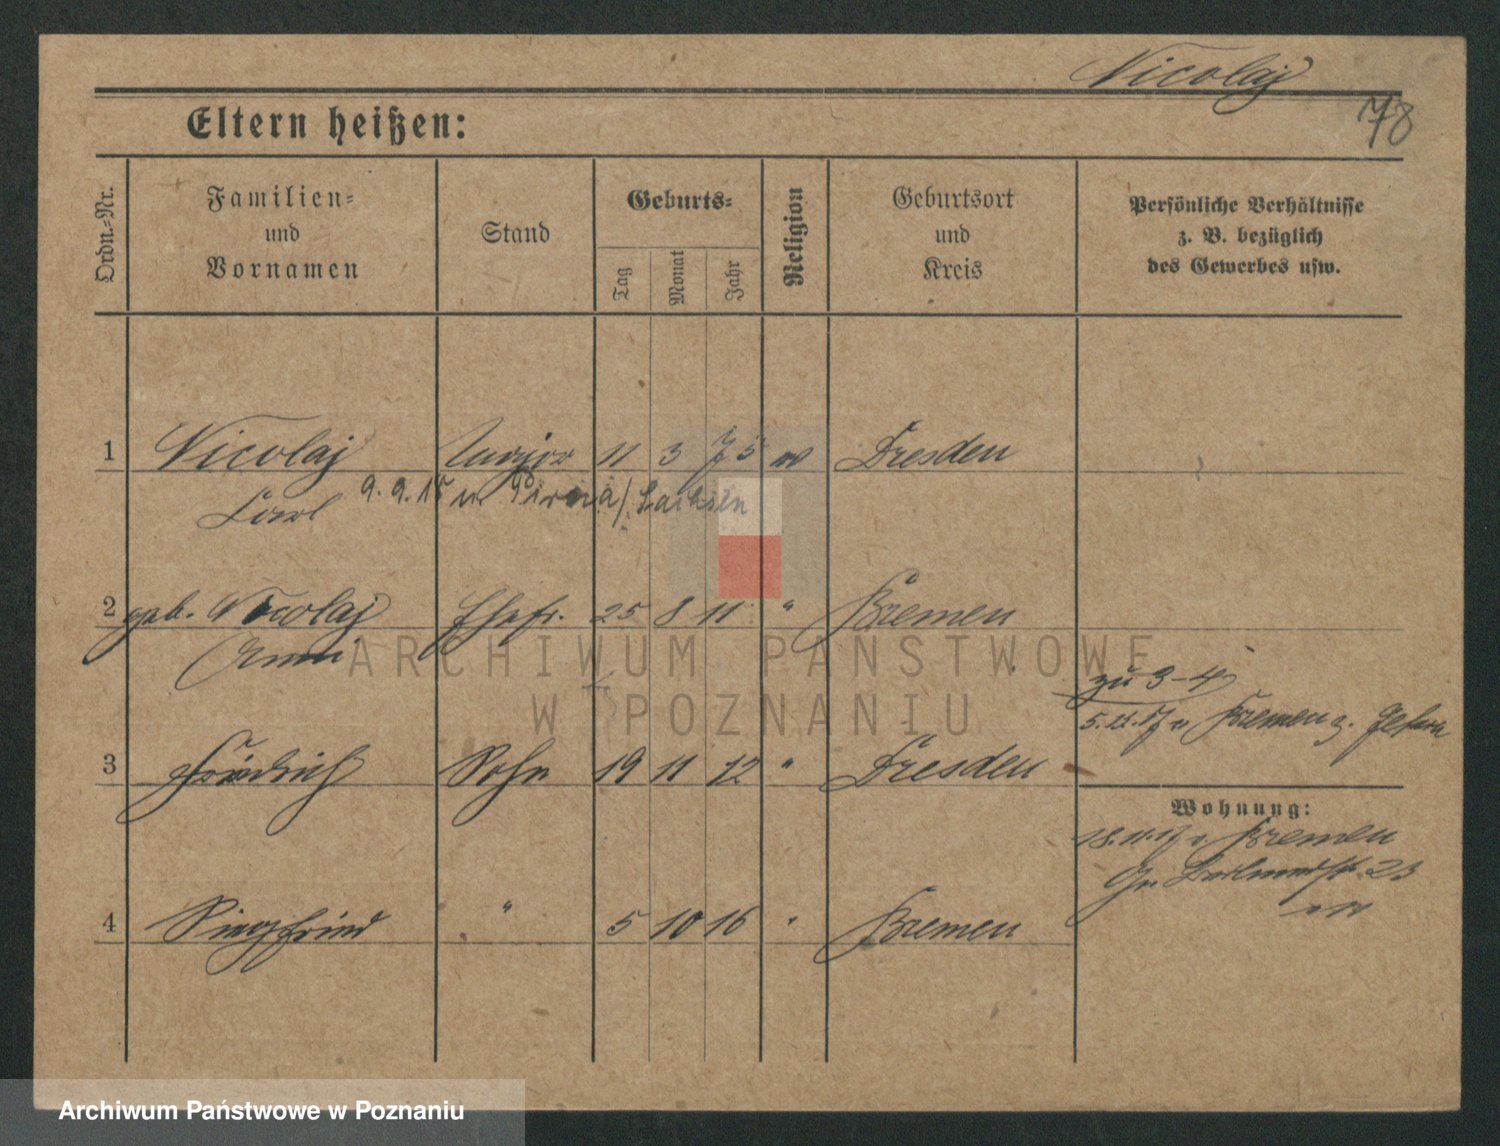 Nicolaj
78
Eltern heißen:
Ordn.-Nr.
Familien-
und
Vornamen
Stand
Geburts-
Tag
Monat
Jahr
Religion
Geburtsort
und
Kreis
Persönliche Verhältnisse
z. B. bezüglich
des Gewerbes usw.
1 Nicolaj Major 11 3 75 Dresden
Carl 9. 9. 15 in Pirna/Sachsen
2 geb. Nicolaj Ehefr. 25 8 11 " Bremen
Anna
zu 3-4
5. 11. 17 v Bremen z.
3 Friedrich Sohn 19 11 12 " Dresden
Wohnung:
18. 11. 17 v Bremen
23
4 Siegfried " 5 10 16 " Bremen
ARCHIWUM PAŃSTWOWE
W POZNANIU
Archiwum Państwowe w Poznaniu